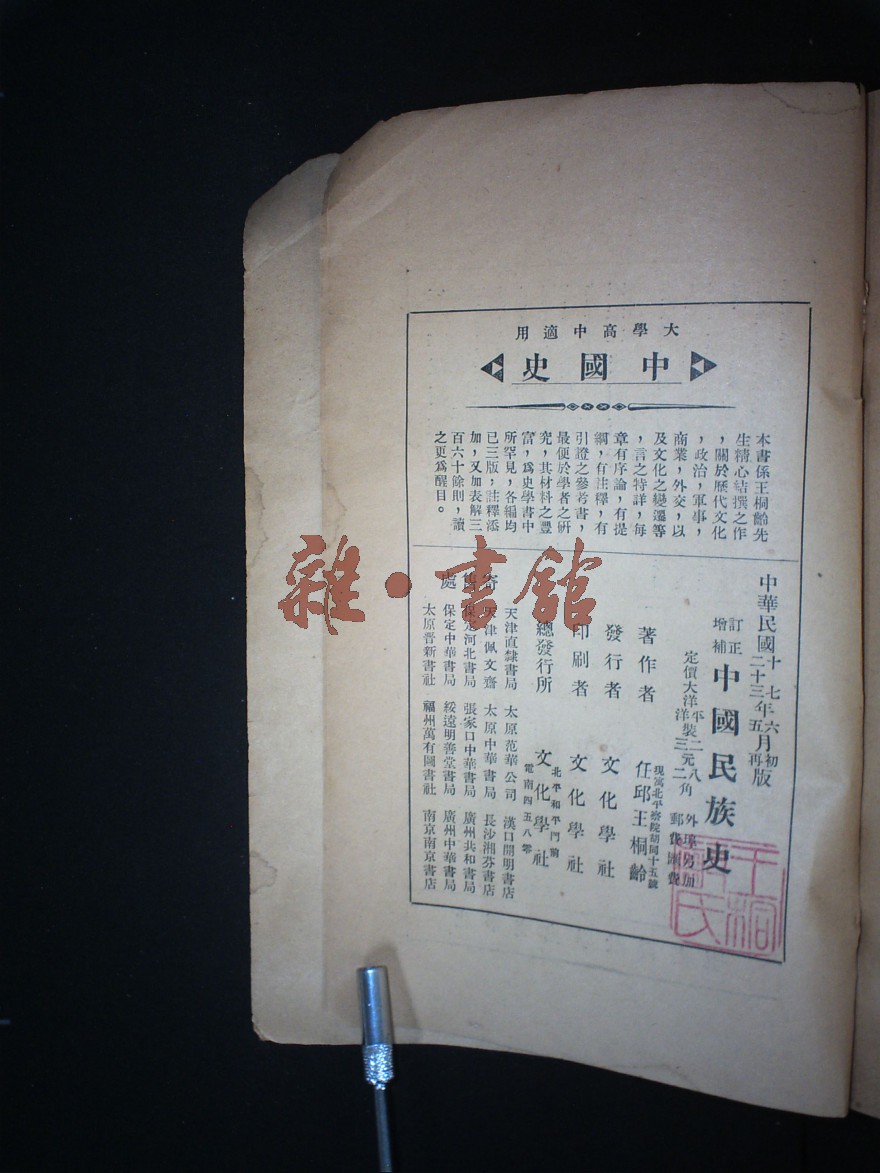 大學高中適用
中國史
本書係王桐齡先
生精心結撰之作
，關於歷代文化
，政治，軍事，
商業，外交，以
及文化之變遷等
，言之特詳，每
章有序論，有提
綱，有註釋，有
引證之參考書，
最便於學者之研
究，其材料之豐
富，爲史學書中
所罕見，各編均
已三版，註釋添
加，又加表解三
百六十餘則，讀
之更爲醒目。
中華民國十七年六月初版
二十三年五月再版
訂正
增補
中國民族史
定價大洋平裝二元八角
洋裝三元二角
外埠另加
郵費匯費
著作者 任邱王桐齡
現寓北平察院胡同十五號
發行者 文化學社
印刷者 文化學社
總發行所 文化學社
北平和平門前
電南四五八零
寄售處
天津直隸書局 太原范華公司 漢口開明書店
天津佩文齋 太原中華書局 長沙湘芬書店
保定河北書局 張家口中華書局 廣州共和書局
保定中華書局 綏遠明善堂書局 廣州中華書局
太原晋新書社 福州萬有圖書社 南京南京書店
王桐
氏
雜·書館